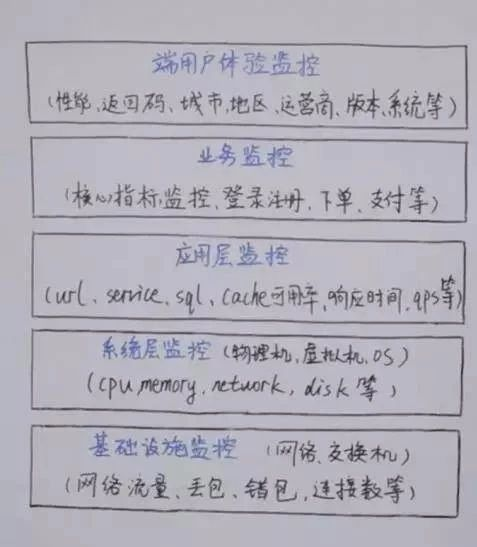 端用户体验监控
(性能、返回码、城市,地区、运营商、版本、系统等)
业务监控
(核心指标监控、登录注册、下单、支付等)
应用层监控
(url、service、sql、cache可用率、响应时间、qps等)
系统层监控 (物理机,虚拟机,OS)
(cpu,memory,network,disk等)
基础设施监控 (网络、交换机)
(网络流量、丢包、错包、连接数等)